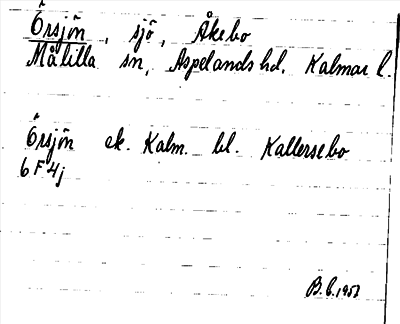 Örsjön, sjö, Åkebo
Målilla sn, Aspelands hd. Kalmar l.
Örsjön ek. Kalm. bl. Kallersebo
6 F 4j
B.G. 1953